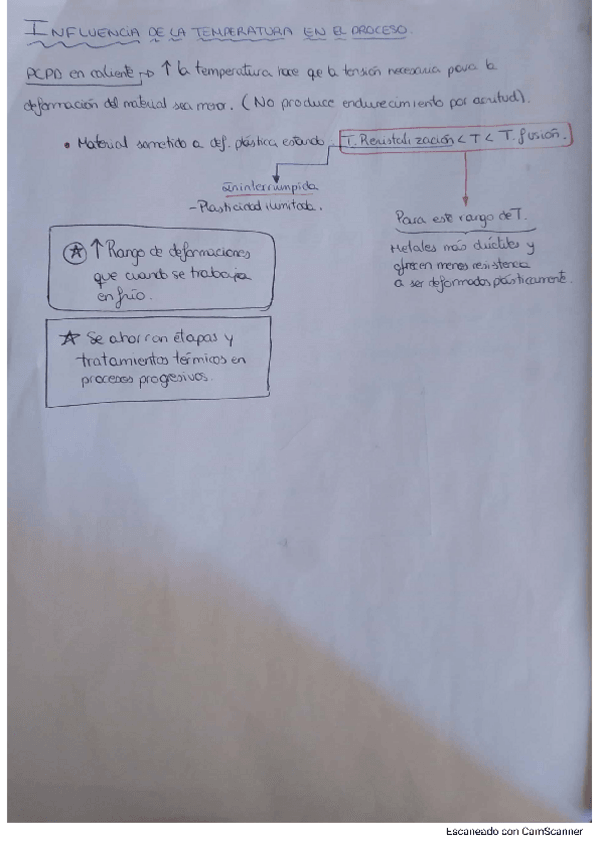 INFLUENCIA DE LA TEMPERATURA EN EL PROCESO.
PCPD en caliente → ↑ la temperatura hace que la tensión necesaria para la
deformación del material sea menor. (No produce endurecimiento por acritud).
• Material sometido a def. plástica estando T. Recristalización < T < T. fusión.
ininterrumpida
- Plasticidad ilimitada.
Para este rango de T.
Metales más dúctiles y
ofrecen menos resistencia
a ser deformados plásticamente.
↑ Rango de deformaciones
que cuando se trabaja
en frío.
☆ Se ahorran etapas y
tratamientos térmicos en
procesos progresivos.
Escaneado con CamScanner